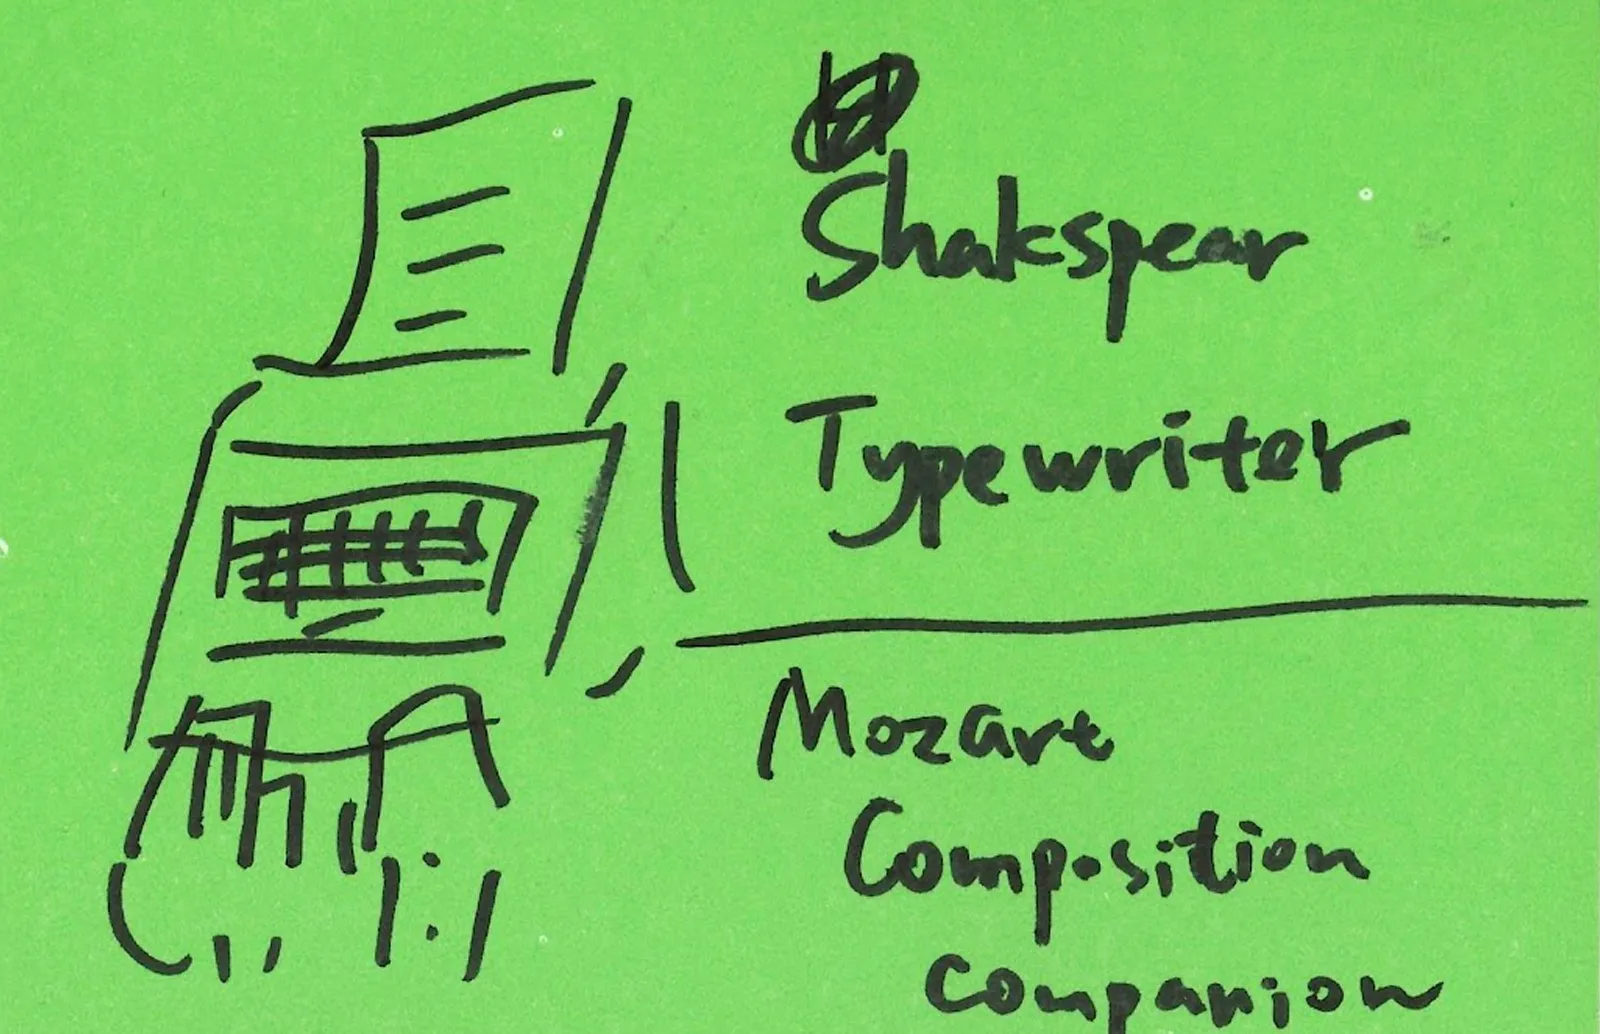 Shakspear
Typewriter
Mozart
Composition
Companion